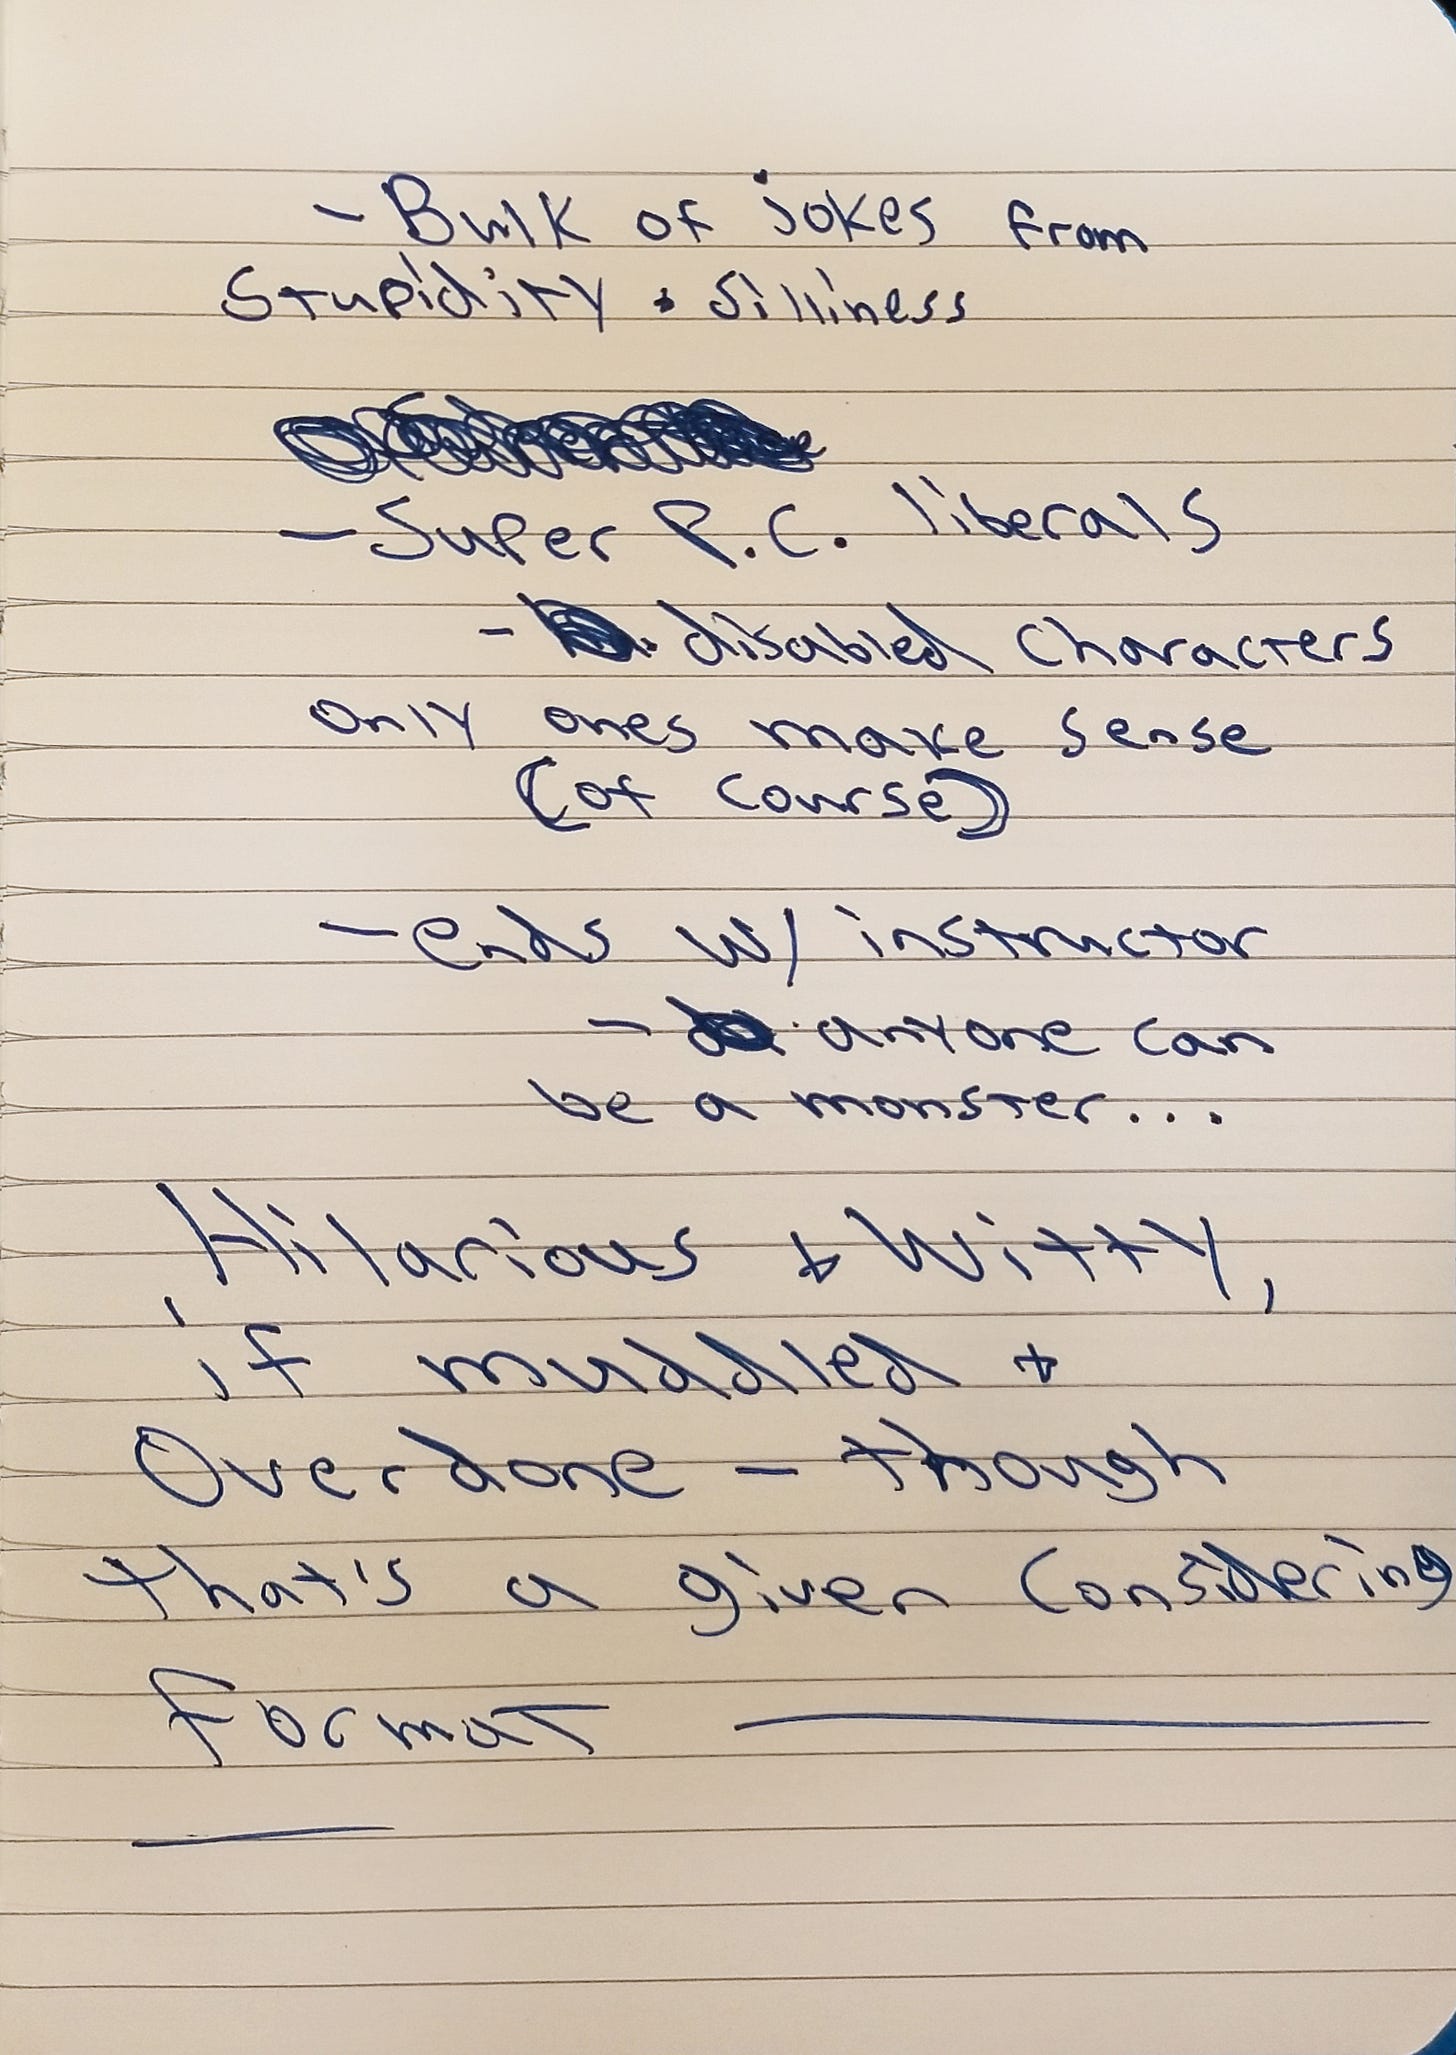 - Bulk of jokes from
Stupidity & Silliness
- Super P.C. liberals
- disabled characters
only ones make sense
(of course)
- ends w/ instructor
- anyone can
be a monster...
Hilarious & Witty,
if muddled &
Overdone - though
that's a given considering
Format